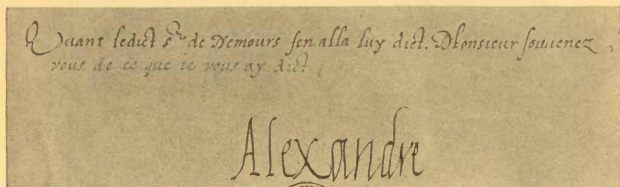 Quant ledict sr de Nemours sen alla luy dict. Monsieur souuenez
vous de ce que ie vous ay dict
Alexandre